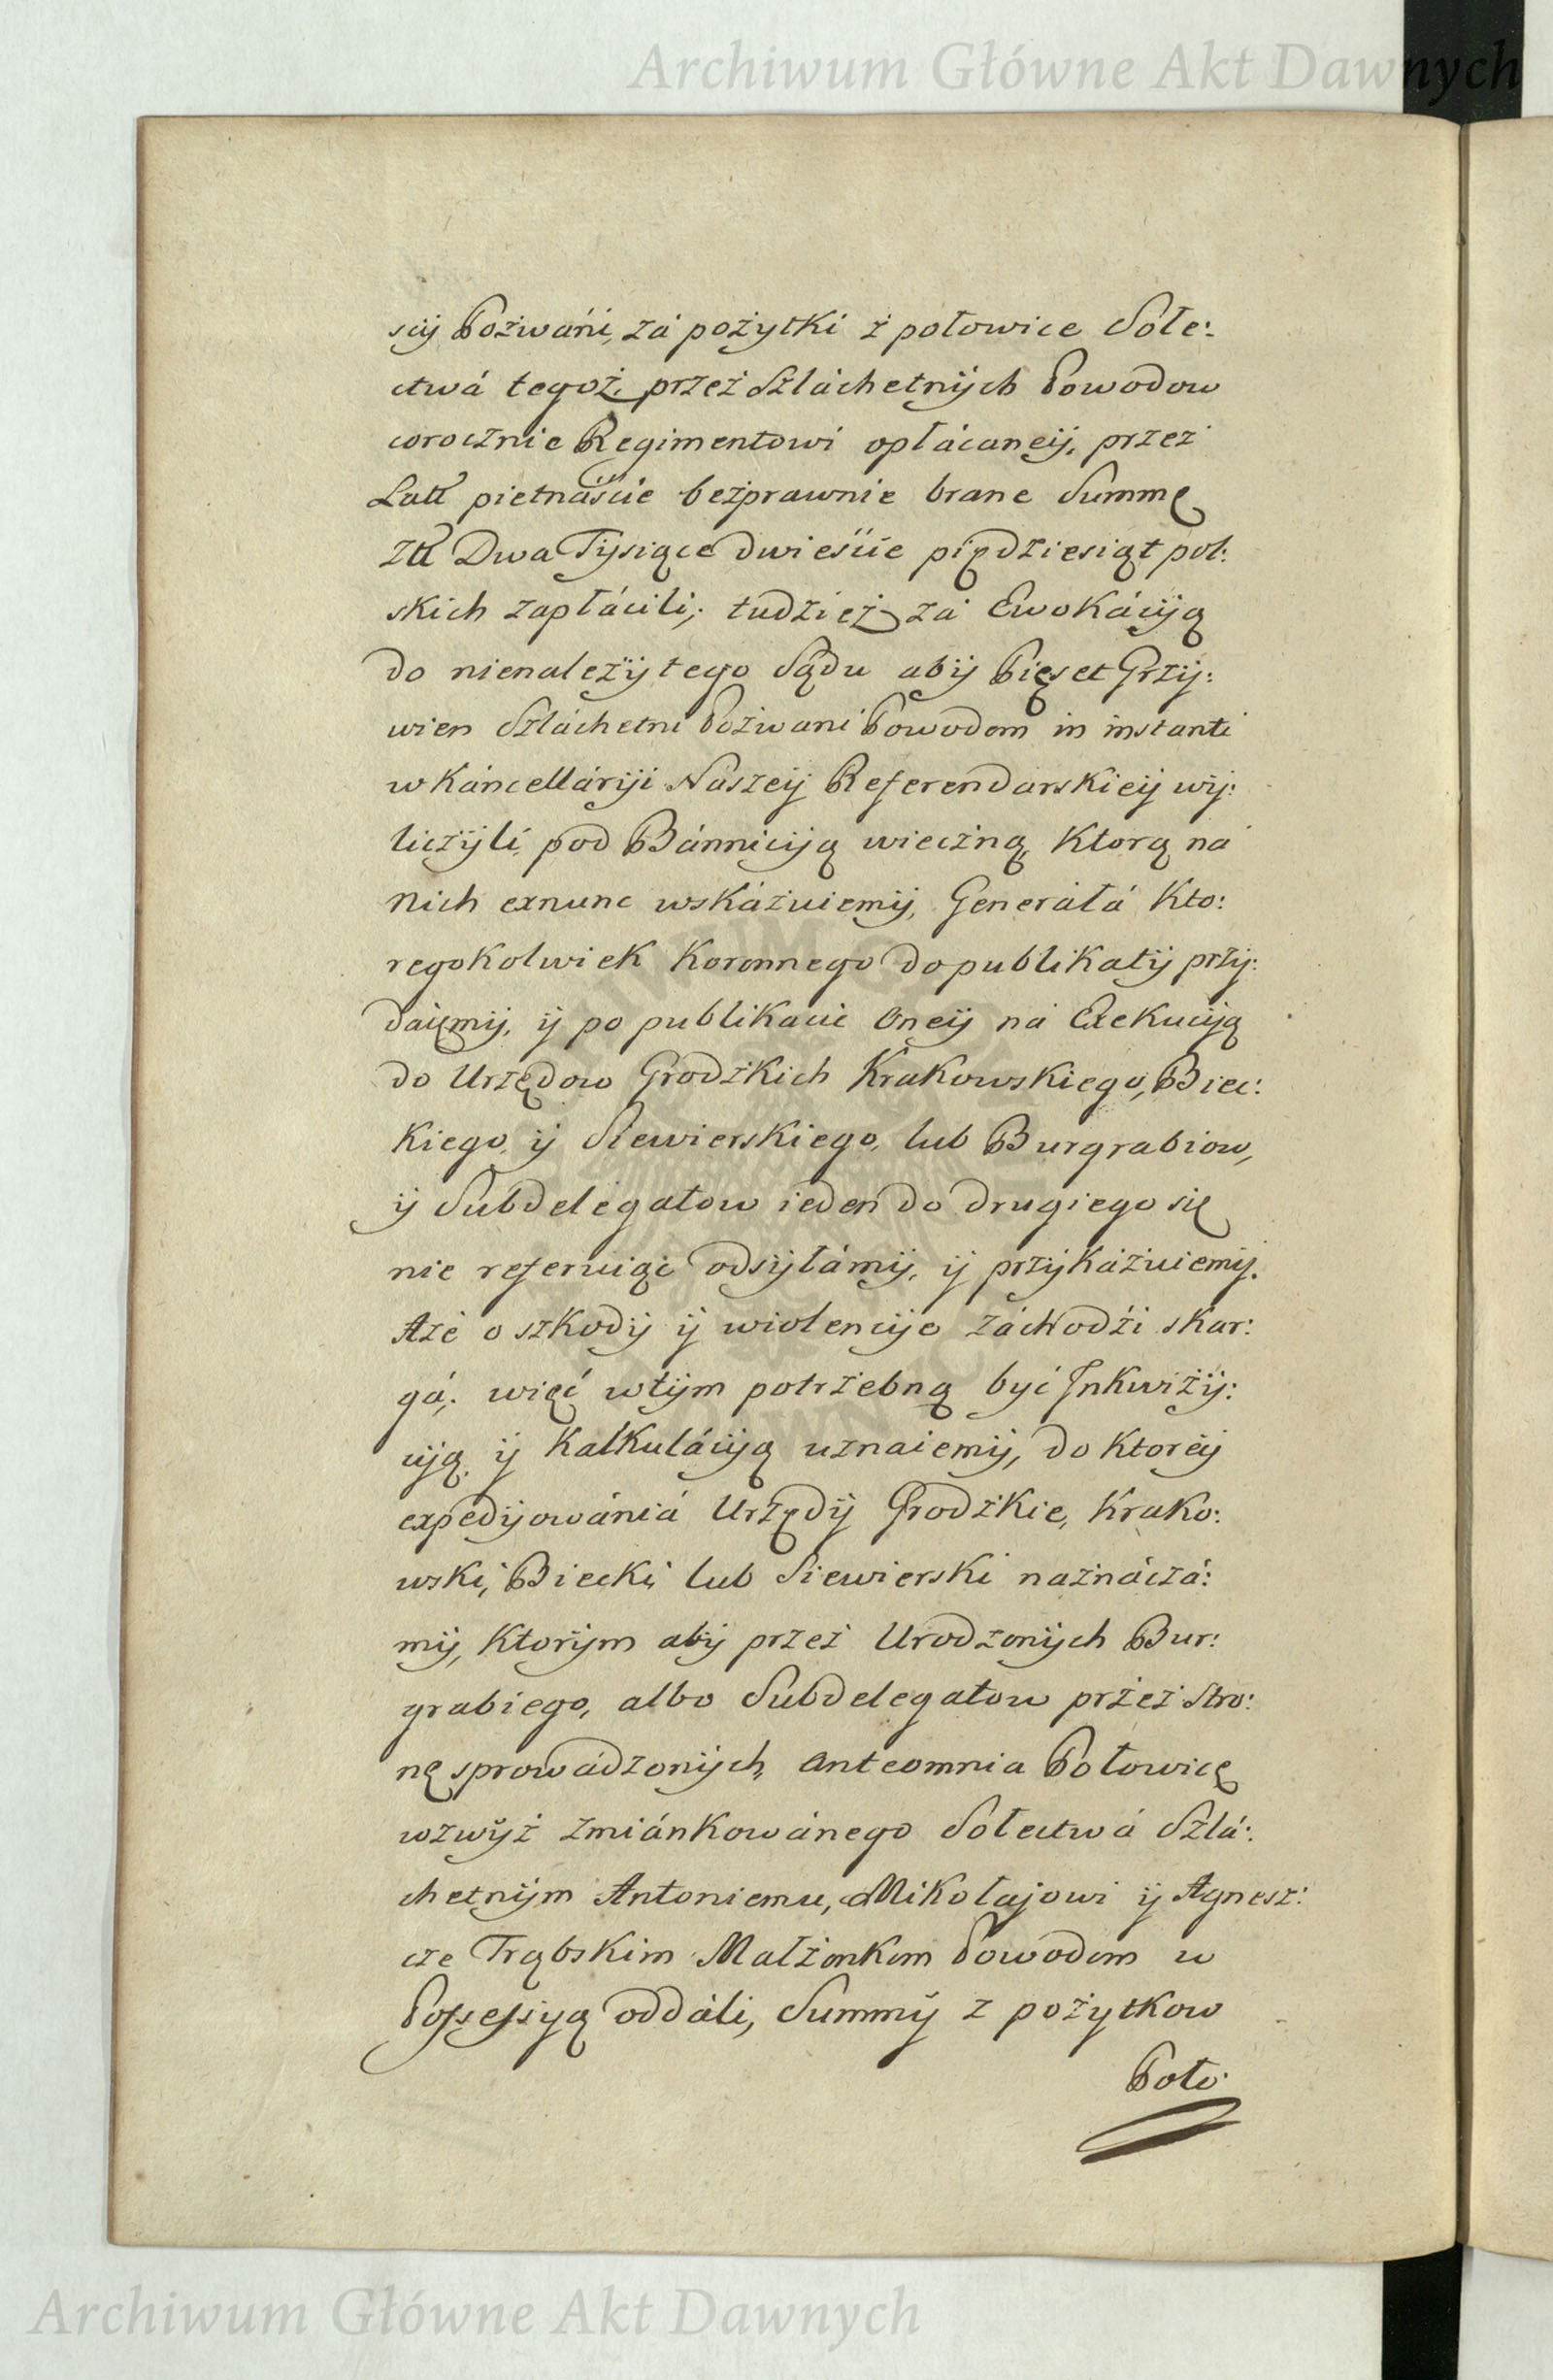 Archiwum Główne Akt Dawnych
scij Pozwáni, zá pożytki z połowice Sołe:
ctwá tegoż, przez Szláchetnijch Powodow
corocznie Regimentowi opłácaneij, przez
Latt pietnaście bezprawnie brane Summę
Złł Dwa Tysiące dwieście piędziesiąt pol:
skich zapłácili; tudzież zá Ewokácyją
do nienależijtego Sądu abij Pięset Grzij:
wien Szláchetni Pozwani Powodom in instanti
w Káncelláriji Nászeij Referendarskieij wij:
liczijli, pod Bánnicyją wieczną, Ktorą ná
nich exnunc wskázuiemij, Generałá Kto:
regokolwiek Koronnego do publikatij przij:
daięmij, ij po publikacie Oneij ná Exekucyją
do Urzędow Grodzkich Krakowskiego, Biec:
Kiego, ij Siewierskiego, lub Burgrabiow,
ij Subdelegatow ieden do drugiego się
nie referuiąc odsijłámij, ij przijkázuiemij.
Aże o szkodij ij wiolencije záchodźi skar:
gá; więc wtijm potrzebną być Jnkwizij:
cyją, ij Kalkulácyją uznaiemij, do Ktoreij
expedijowániá Urzędij Grodzkie, Krako:
wski, Biecki, lub Siewierski náznáczá:
mij, Ktorijm abij przez Urodzonijch Bur:
grabiego, albo Subdelegatow przez Stro:
nę sprowádzonijch, anteomnia Połowicę
wzwijż zmiánkowánego Sołectwá Szlá:
chetnijm Antoniemu, Mikołajowi ij Agnesz:
cze Trąbskim Małżonkom Powodom w
Possessyją oddáli, Summij z pożytkow
Poło:
Archiwum Główne Akt Dawnych